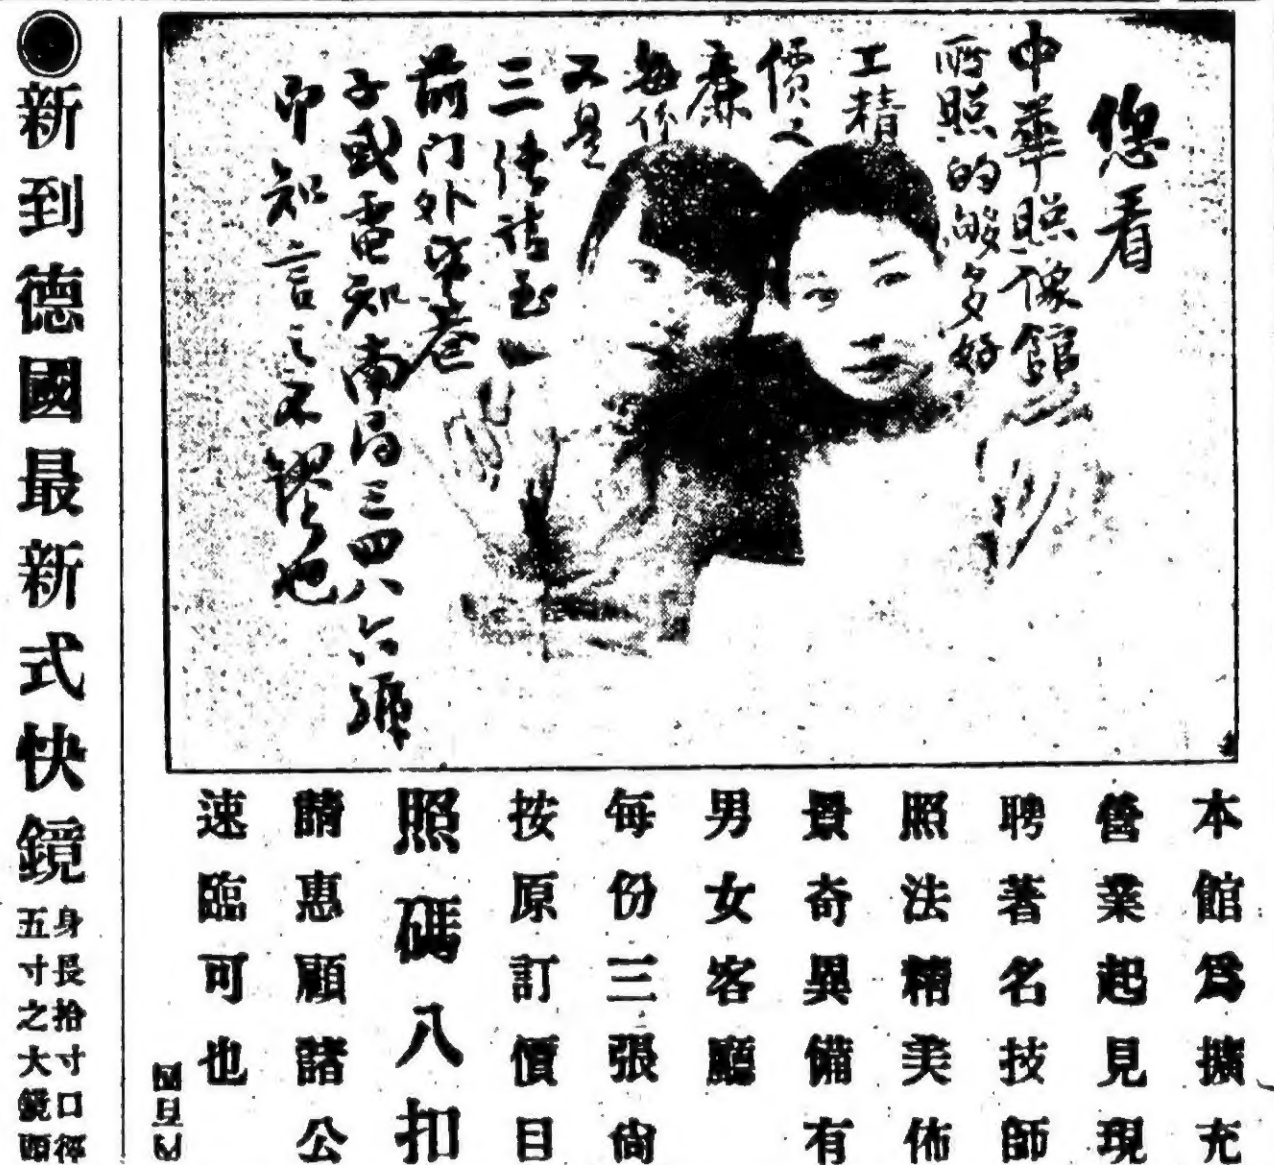 您看
中華照像館
所照的够多好
工精
價又
廉
每份
又是
三張請至
前门外 巷
子或電知南局三四八六號
即知言之不謬也
本館爲擴充
營業起見現
聘著名技師
照法精美佈
景奇異備有
男女客廳
每份三張尙
按原訂價目
照碼八扣
請惠顧諸公
速臨可也
新到德國最新式快鏡
身長拾寸口徑
五寸之大鏡頭